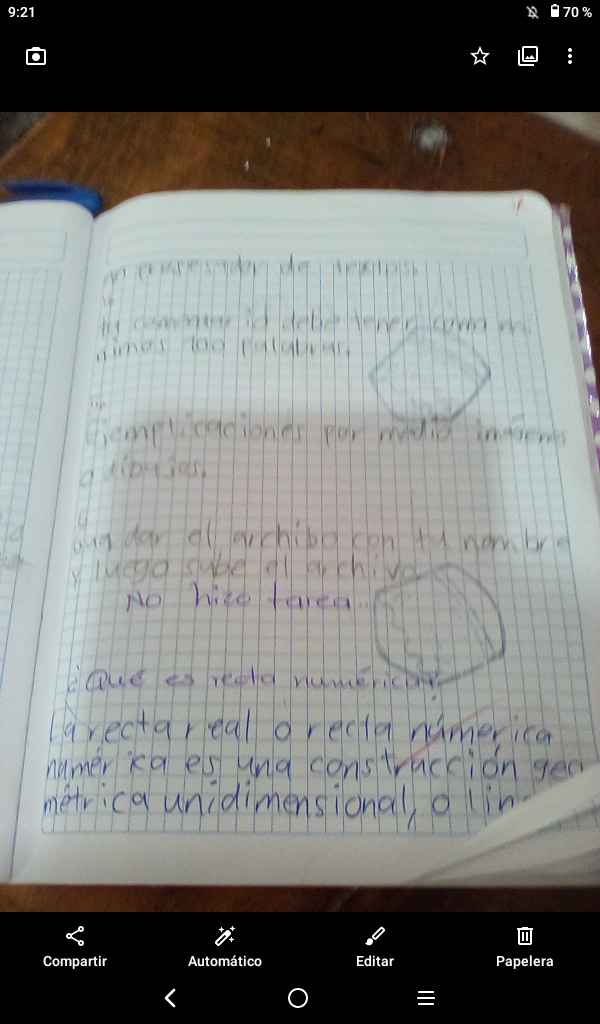 9:21
70 %
un prosesador de textos.
tu comentario debe tener como mi
nimos 100 palabras.
Ejemplicaciones por medio imágenes
o dibujos.
guardar el archibo con tu nombre
y luego sube el archivo
NO hizo tarea..
¿Qué es recta numérica?
La recta real o recta númerica
numérica es una construcción geo
métrica unidimensional, o
Compartir
Automático
Editar
Papelera